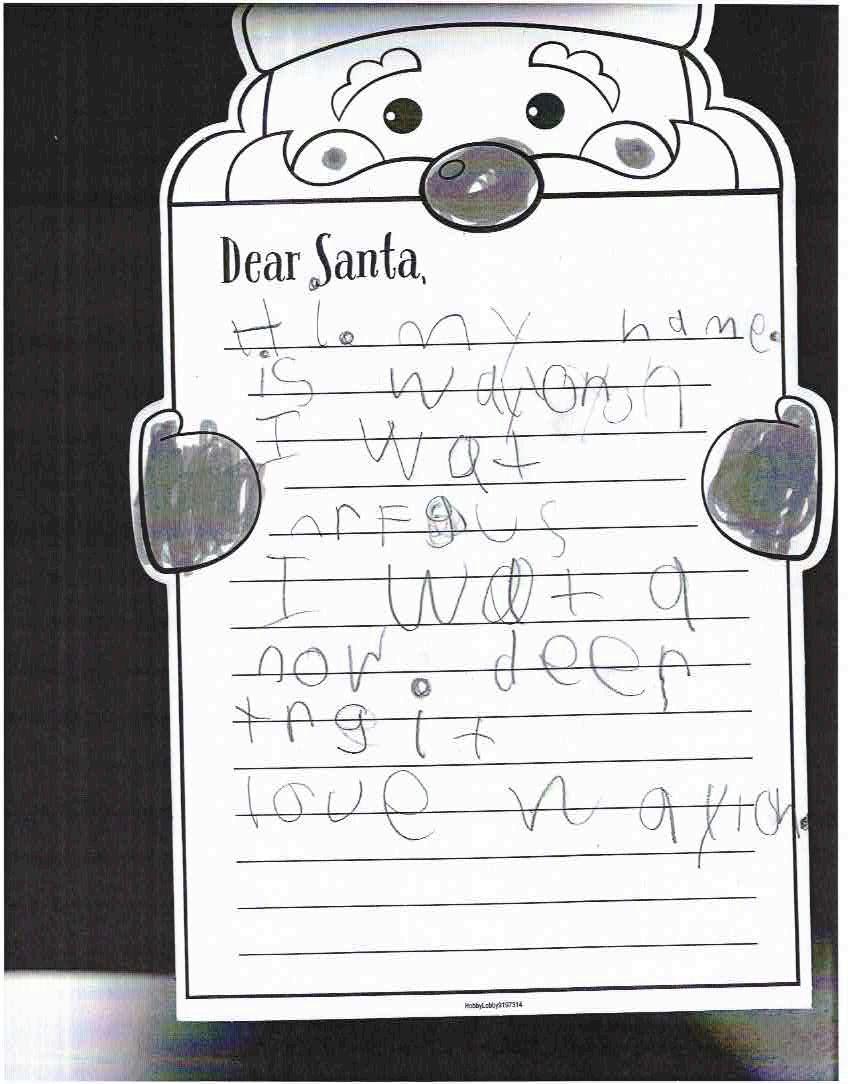 Dear Santa,
Hi. my name.
is wayon
I wat
nrFgus
I wat a
now. deer
trgit
love wayion.
HobbyLobby9197314